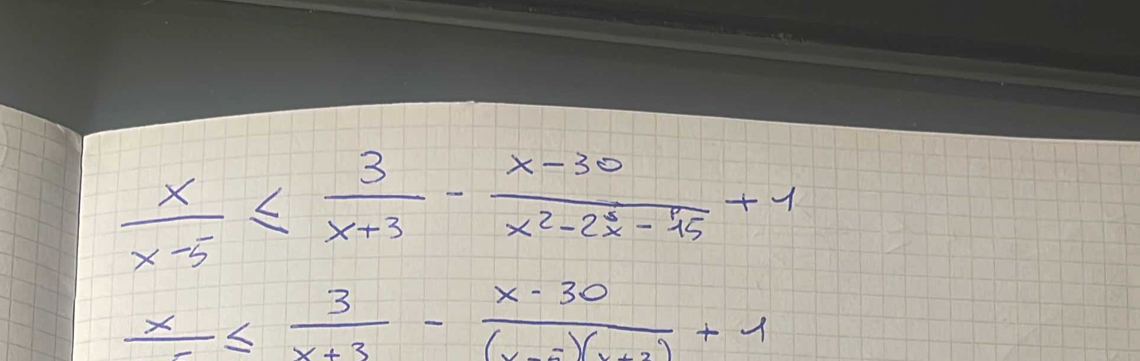 x/(x-5) ≤ 3/(x+3) - (x-30)/(x²-2x-15) + 1
x/ 5 ≤ 3/(x+3) - (x-30)/((x-5)(x+3)) + 1